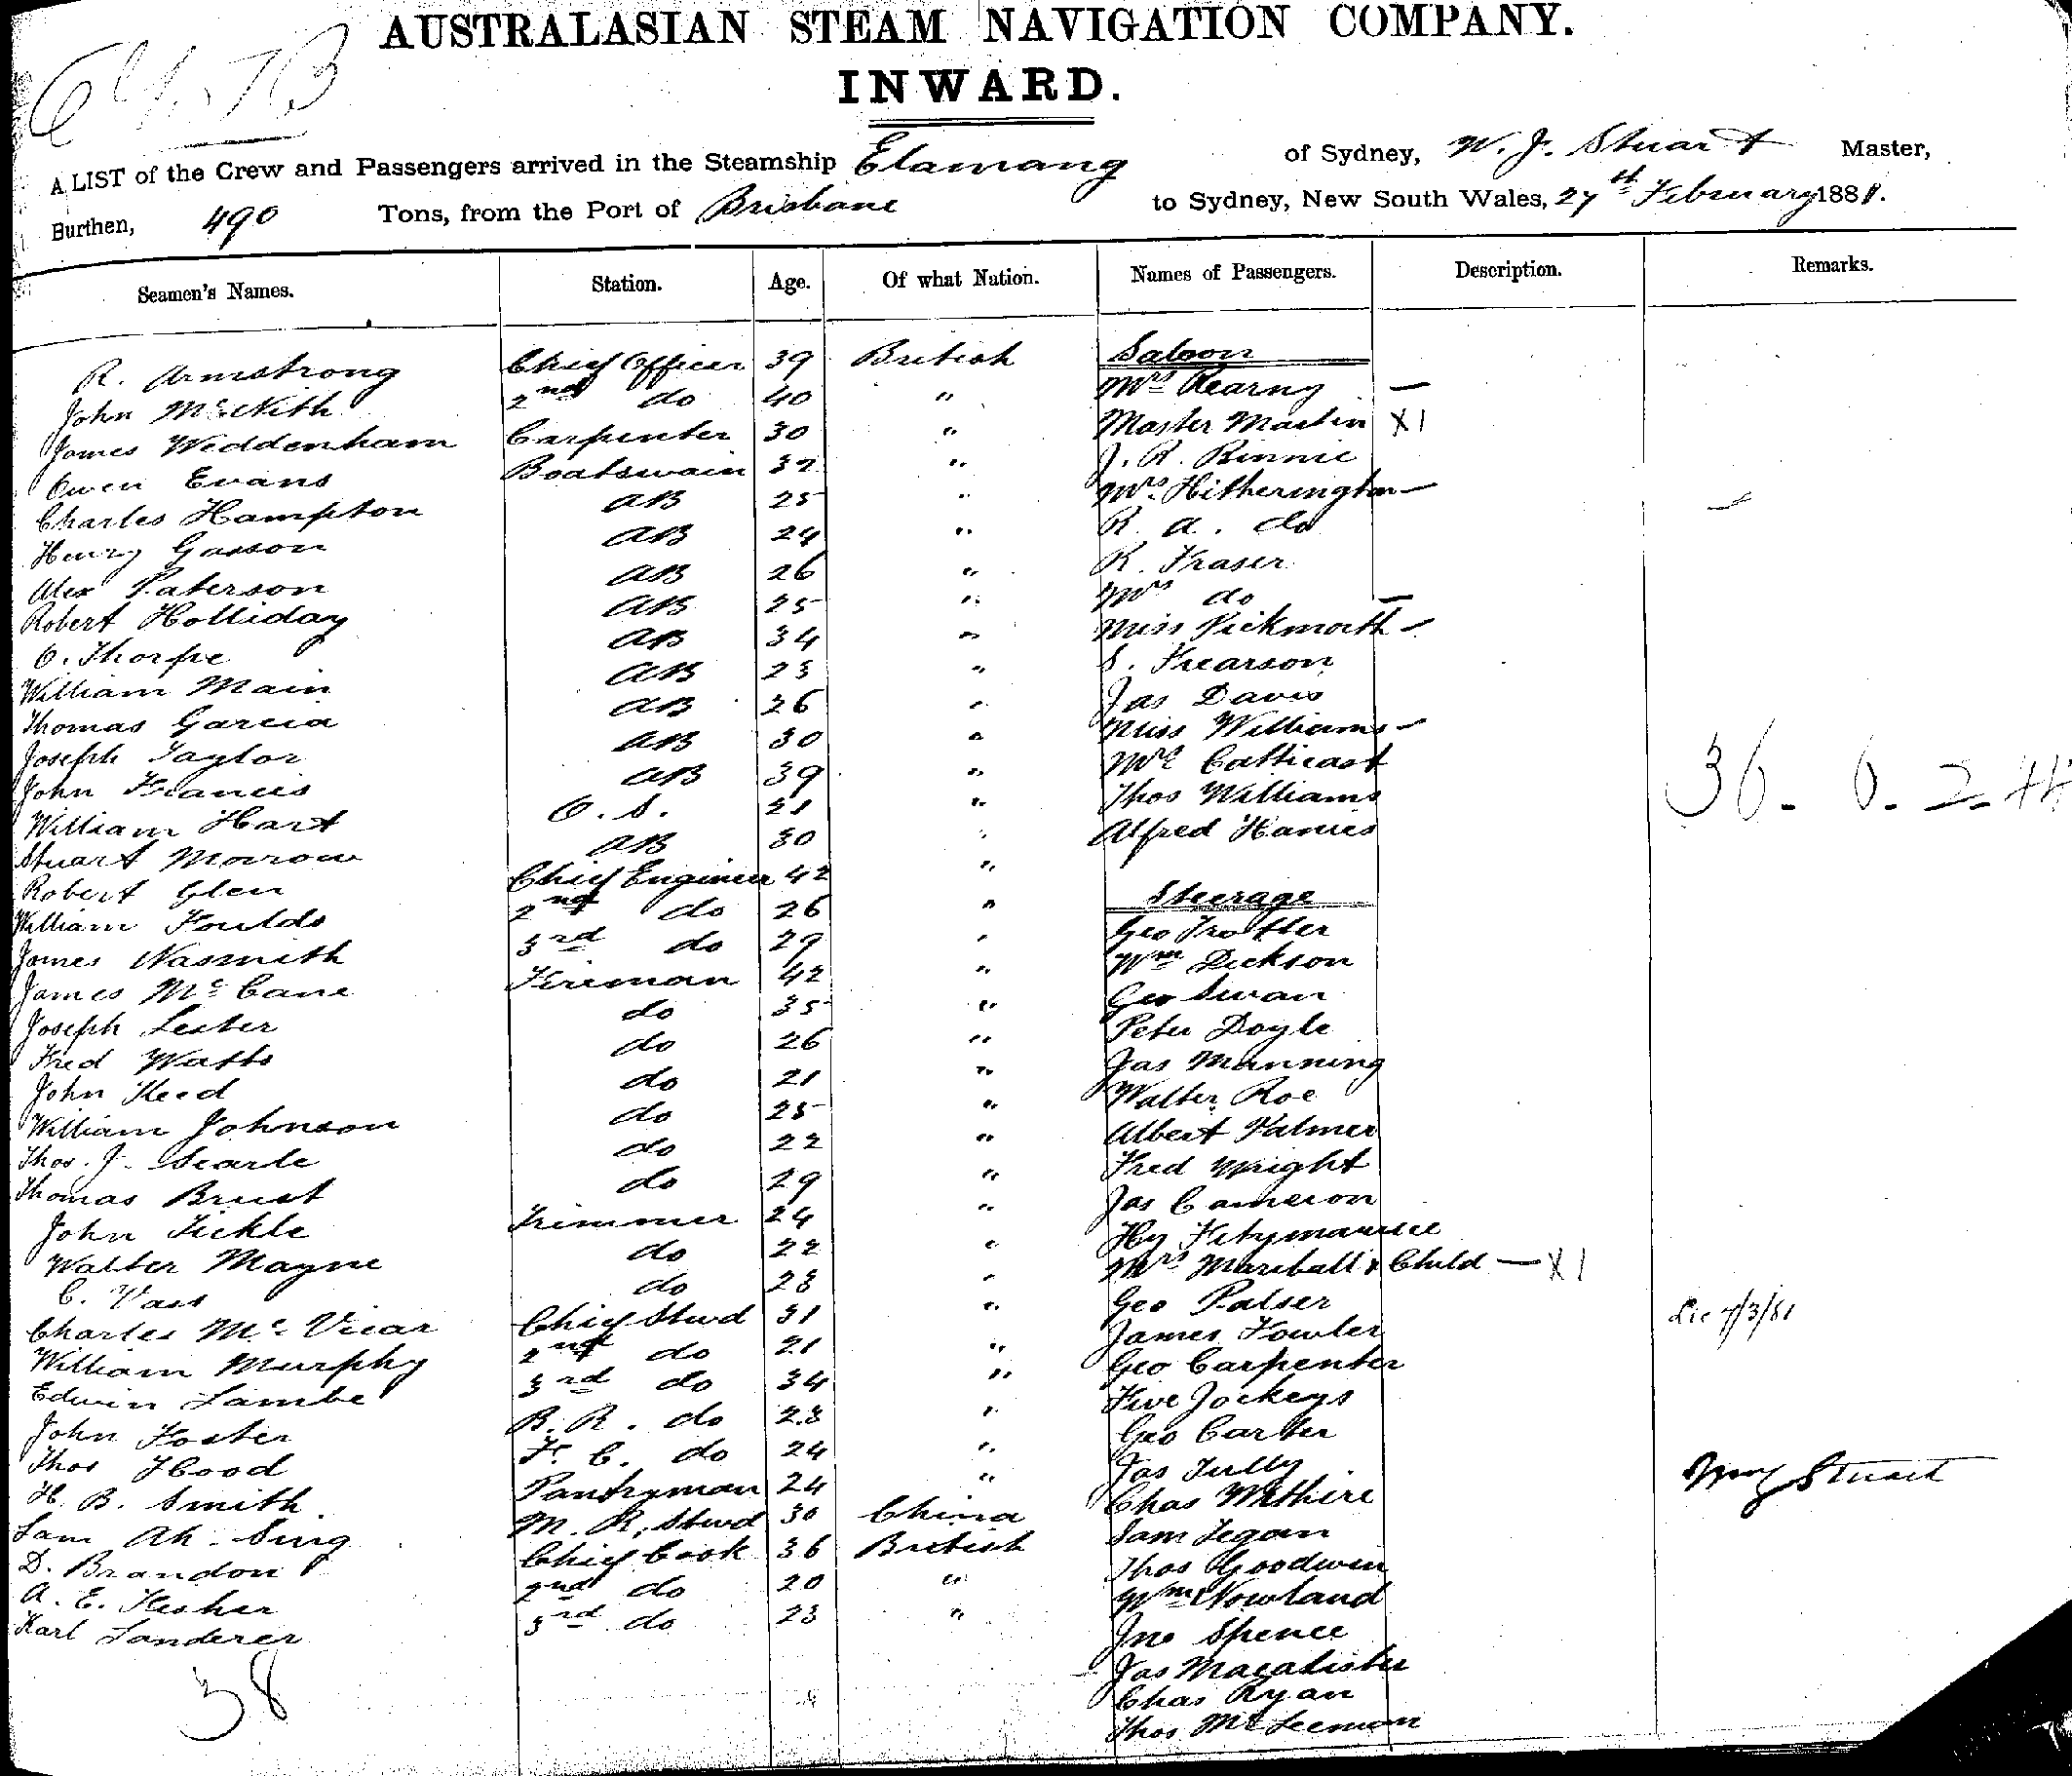 AUSTRALASIAN STEAM NAVIGATION COMPANY.
INWARD.
A LIST of the Crew and Passengers arrived in the Steamship Elamang of Sydney, W. J. Stuart Master,
Burthen, 490 Tons, from the Port of Brisbane to Sydney, New South Wales, 27th February 1881.
Seamen's Names. Station. Age. Of what Nation. Names of Passengers. Description. Remarks.
R. Armstrong Chief Officer 39 British Saloon
John McNith 2nd do 40 " Mrs Kearny —
James Weddenham Carpenter 30 " Master Martin X1
Owen Evans Boatswain 32 " J. R. Binnie
Charles Hampton AB 25 " Mrs Hitherington —
Henry Gasson AB 24 " R. A. do
Alex Paterson AB 26 " R. Fraser
Robert Holliday AB 25 " Mrs do —
O. Thorpe AB 34 " Miss Pickmorth —
William Main AB 23 " S. Frearson
Thomas Garcia AB 26 " Jas Davis
Joseph Taylor AB 30 " Miss Williams —
John Francis AB 39 " Catticast
William Hart O. S. 21 " Thos Williams
Stuart Morrow AB 30 " Alfred Hanies
Robert Glen Chief Engineer 42 "
William Foulds 2nd do 26 " Steerage
James Nasmith 3rd do 29 " Geo Trotter
James McCane Fireman 42 " Wm Dickson
Joseph Lester do 35 " Geo Swan
Fred Watts do 26 " Peter Doyle
John Reed do 21 " Jas Manning
William Johnson do 25 " Walter Roe
Thos. J. Searle do 22 " Albert Palmer
Thomas Brust do 29 " Fred Wright
John Tickle Trimmer 24 " Jas Cameron
Walter Mayne do 22 " Hy Fitzmaurice
C. Vass do 23 " Mrs Marshall & Child — X1
Charles McVicar Chief Stwd 31 " Geo Palser
William Murphy 2nd do 21 " James Fowler
Edwin Lambe 3rd do 34 " Geo Carpenter
John Foster B. R. do 23 " Five Jockeys
Thos Hood F. C. do 24 " Geo Carter
H. B. Smith Pantryman 24 " Jas Tully
Sam Ah Sing M. R. Stwd 30 China Chas
D. Brandon Chief Cook 36 British Sam Tegan
A. E. Kesher 2nd do 20 " Thos Goodwin
Karl Landerer 3rd do 23 " Wm Nowland
Jno Spence
Jas Macalister
Chas Ryan
Thos McLeeman
38
36. 6. 2.
7/3/81
Stuart